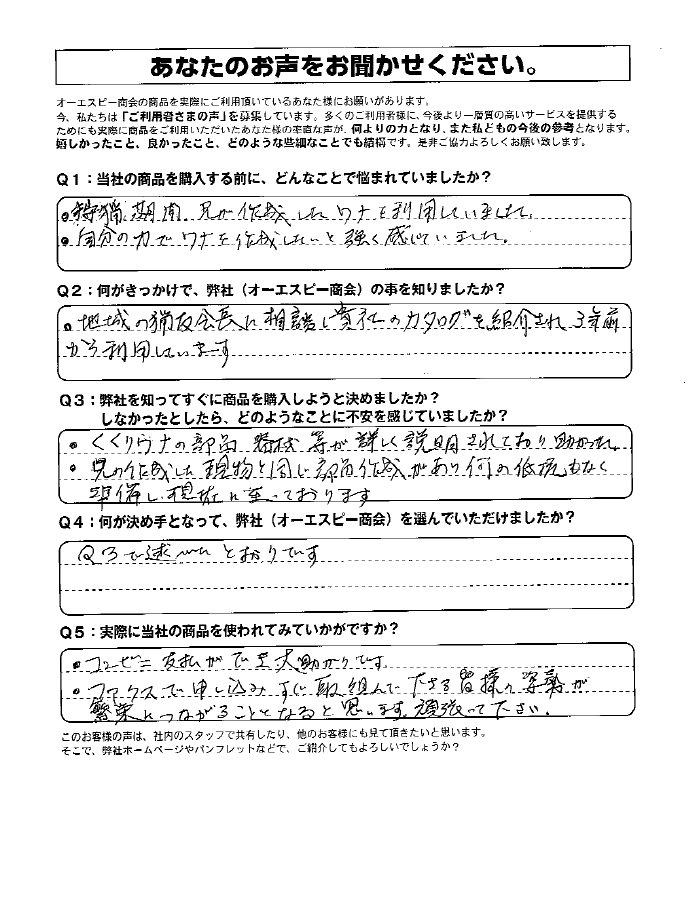 あなたのお声をお聞かせください。
オーエスピー商会の商品を実際にご利用頂いているあなた様にお願いがあります。
今、私たちは「ご利用者さまの声」を募集しています。多くのご利用者様に、今後より一層質の高いサービスを提供する
ためにも実際に商品をご利用いただいたあなた様の率直な声が、何よりの力となり、また私どもの今後の参考となります。
嬉しかったこと、良かったこと、どのような些細なことでも結構です。是非ご協力よろしくお願い致します。
Q1：当社の商品を購入する前に、どんなことで悩まれていましたか？
●狩猟期間、兄が作成したワナを利用していました。
●自分の力でワナを作成したいと強く感じていました。
Q2：何がきっかけで、弊社（オーエスピー商会）の事を知りましたか？
●地域の猟友会長に相談し貴社のカタログを紹介され3年前
から利用しています
Q3：弊社を知ってすぐに商品を購入しようと決めましたか？
しなかったとしたら、どのようなことに不安を感じていましたか？
●くくりワナの部品 器材 等が詳しく説明されており助かった。
●兄の作成した現物と同じ部品作成があり何の抵抗もなく
準備し現在に至っております
Q4：何が決め手となって、弊社（オーエスピー商会）を選んでいただけましたか？
Q3で述べたとおりです
Q5：実際に当社の商品を使われてみていかがですか？
●コンビニ支払ができ大助かりです。
●ファックスで申し込みすぐ取組んで下さる皆様の姿勢が
繁栄につながることとなると思います。頑張って下さい。
このお客様の声は、社内のスタッフで共有したり、他のお客様にも見て頂きたいと思います。
そこで、弊社ホームページやパンフレットなどで、ご紹介してもよろしいでしょうか？